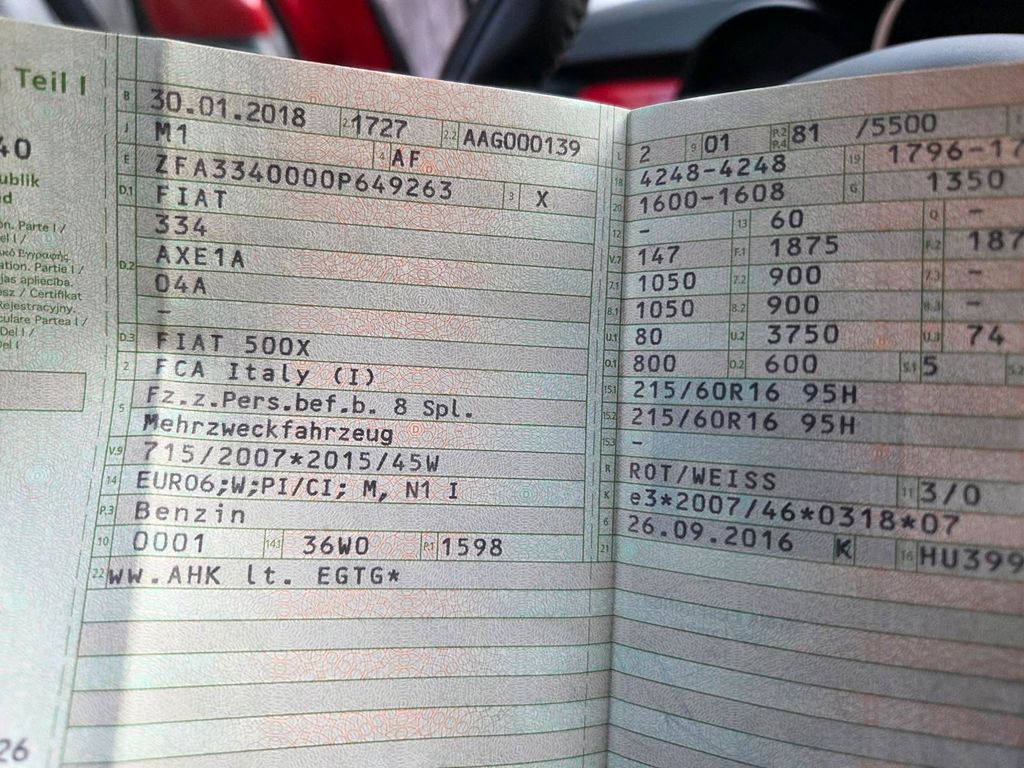 Teil I
40
ublik
d
on. Parte I /
el I /
κό Εγγραφής
ation. Partie I /
jas apliecība.
osz / Certifikat
Rejestracyjny.
culare Partea I /
Del I /
Del I
26
B 30.01.2018 2.1 1727 2.2 AAG000139
J M1 4 AF
E ZFA3340000P649263 3 X
D.1 FIAT
334
D.2 AXE1A
04A
–
D.3 FIAT 500X
2 FCA Italy (I)
5 Fz.z.Pers.bef.b. 8 Spl.
Mehrzweckfahrzeug
V.9 715/2007*2015/45W
14 EURO6;W;PI/CI; M, N1 I
P.3 Benzin
10 0001 14.1 36W0 P.1 1598
22 ww.AHK lt. EGTG*
L 2 9 01 P.2 P.4 81 /5500
18 4248-4248 19 1796-17
20 1600-1608 G 1350
12 – 13 60 Q –
V.7 147 F.1 1875 F.2 187
7.1 1050 7.2 900 7.3 –
8.1 1050 8.2 900 8.3 –
U.1 80 U.2 3750 U.3 74
O.1 800 O.2 600 S.1 5 S.2
15.1 215/60R16 95H
15.2 215/60R16 95H
15.3 –
R ROT/WEISS 11 3/0
K e3*2007/46*0318*07
6 26.09.2016 K 16 HU399
21